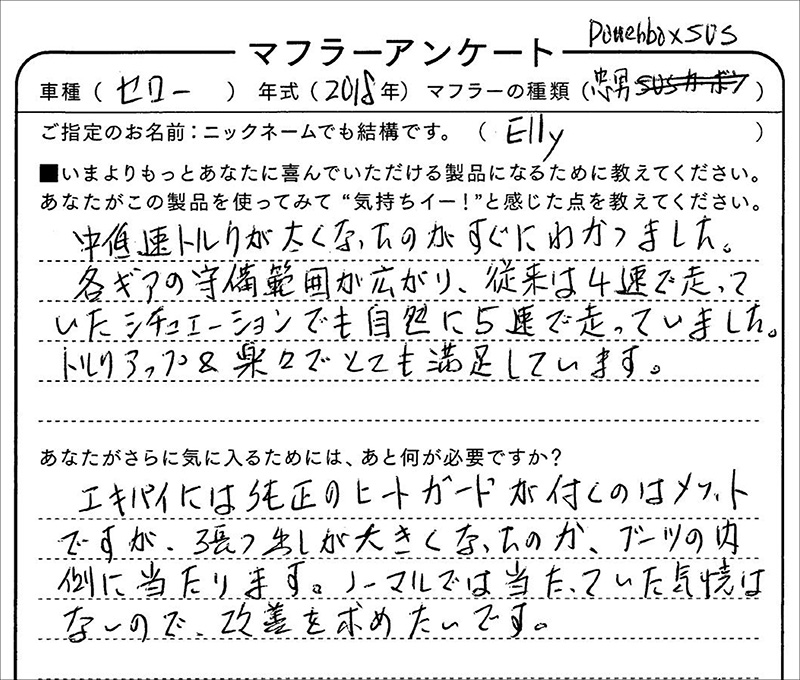 Powerbox SUS
マフラーアンケート
車種（ セロー ） 年式（2018年） マフラーの種類（忠男 SUSカーボン）
ご指定のお名前：ニックネームでも結構です。（ Elly ）
■いまよりもっとあなたに喜んでいただける製品になるために教えてください。
あなたがこの製品を使ってみて“気持ちイー！”と感じた点を教えてください。
中低速トルクが太くなったのがすぐにわかりました。
各ギアの守備範囲が広がり、従来は4速で走って
いたシチュエーションでも自然に5速で走っていました。
トルクアップ&楽々でとても満足しています。
あなたがさらに気に入るためには、あと何が必要ですか？
エキパイには純正のヒートガードが付くのはメリット
ですが、張り出しが大きくなったのか、ブーツの内
側に当たります。ノーマルでは当たっていた気憶は
ないので、改善を求めたいです。